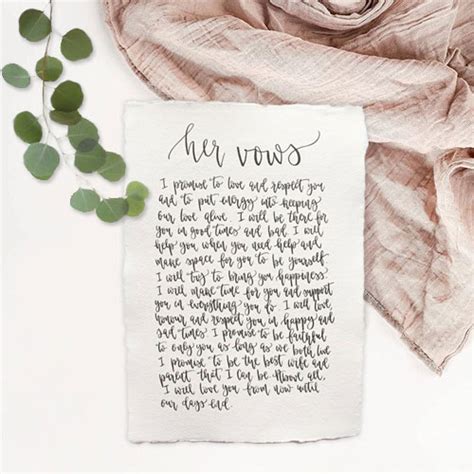 her vows
I promise to love and respect you
and to put energy into keeping
our love alive. I will be there for
you in good times and bad. I will
help you when you need help and
make space for you to be yourself.
I will try to bring you happiness.
I will make time for you and support
you in everything you do. I will love,
honour and respect you in happy and
sad times. I promise to be faithful
to only you as long as we both live.
I promise to be the best wife and
parent that I can be. Above all,
I will love you from now until
our days end.